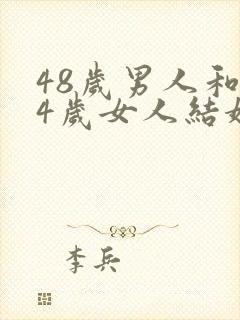 48歲男人和
4歲女人結婚
李兵